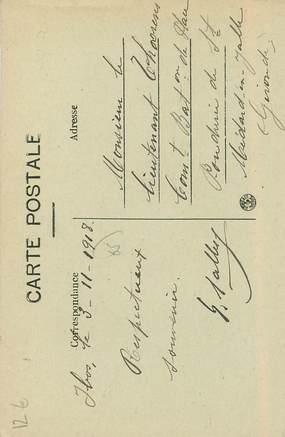 CARTE POSTALE
Correspondance
Adresse
Ibos, le 3-11-1918.
Respectueux
souvenir.
Monsieur le
Lieutenant
Com.t Bat.on de Place
Poudrerie de St
Médard-en-Jalle
(Gironde)
85
12-6